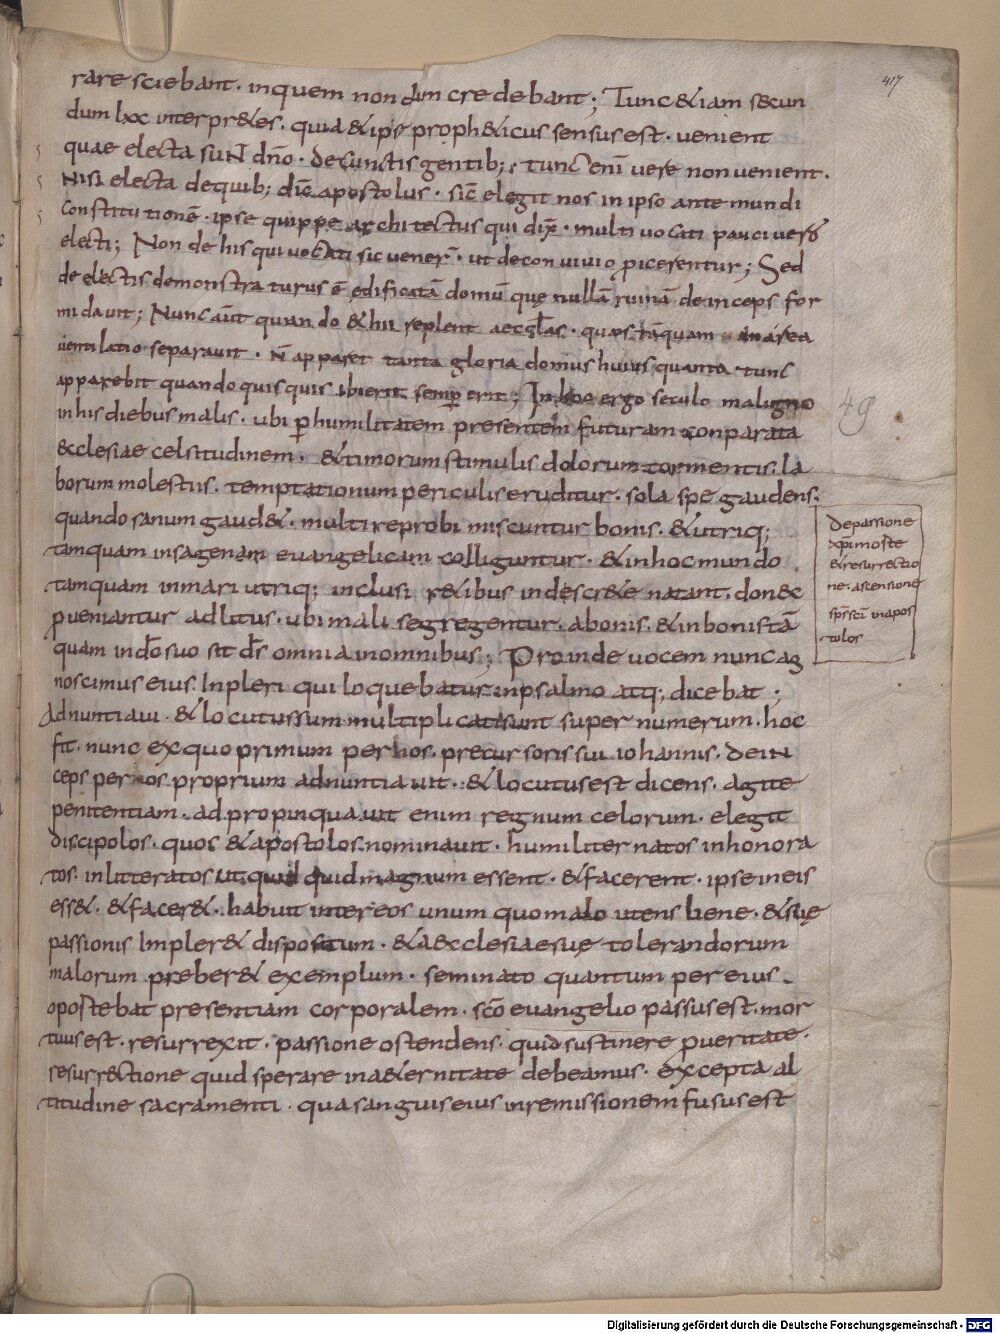 417
rare sciebant · inquem non dum credebant ; Tunc &iam secun
dum lxx interpr&es · quia &ipse proph&icus sensus est · venient
quae electa suNt dño · decunctis gentib; · tunc enī vere non venient ·
Nisi electa dequib; dic̄ apostolus · sic̄ elegit nos in ipso ante mundi
constitutionē · ipse quippe architectus qui dix̄ · multi vocati pauci vero
electi ; Non de his qui vocati sic vener̄ · ut deconvivio picerentur ; Sed
de electis demonstraturus ē edificatā domū quę nullā ruinā deinceps for
midavit ; Nunc aūt quando &hii replent aecclas · quos tāquam in area
ventilatio separavit · n̄ apparet tanta gloria domus huius quanta tunc
apparebit quando quisquis ibi erit semp̄ erit ; In hoc ergo seculo maligno
in his diebus malis · ubi p̄ humilitatem presentem futuram conparata
&cclesiae celsitudinem · &timorum stimulis dolorum tormentis · la
borum molestiis · temptationum periculis eruditur · sola spe gaudens ·
quando sanum gaud& · multi reprobi miscuntur bonis · &utriq;
tamquam insagenam evangelicam colliguntur · &inhoc mundo
tamquam inmari utriq; inclusi r&ibus indescr&e natant · don&c
pveniantur adlitus · ubi mali segregentur · abonis · &inbonis tā
quam in dō suo sit d̄s omnia inomnibus ; Proinde vocem nunc ag
noscimus eius · Inpleri qui loquebatur inpsalmo atq; dicebat ;
Adnuntiavi · &locutussum multiplicatisunt super numerum · hoc
fit · nunc exquo primum per hos · precursoris sui iohannis · deiN
ceps per hos proprium adnuntiavit · &locutus est dicens · agite
penitentiam · adpropinquavit enim regnum celorum · elegit
discipolos · quos &apostolos nominavit · humiliter natos inhonora
tos · inlitteratos ut quid quid magnum essent · &facerent · ipse ineis
ess& · &facer& · habuit inter eos unum quo malo utens bene · &suę
passionis Impler& dispositum · &a&cclesiaesuę tolerandorum
malorum preber& exemplum · seminato quantum per eius
oportebat presentiam corporalem · scō evangelio passus est · mor
tuus est · resurrexit · passione ostendens · quid sustinere pveritate ·
resurr&ctione quid sperare ina&ernitate debeamus · excepta al
titudine sacramenti · qua sanguis eius inremissionem fusus est
49
de passione
xp̄i morte
&resurrectio
ne · ascensione
sp̄s sc̄i inapos
tolos
Digitalisierung gefördert durch die Deutsche Forschungsgemeinschaft - DFG